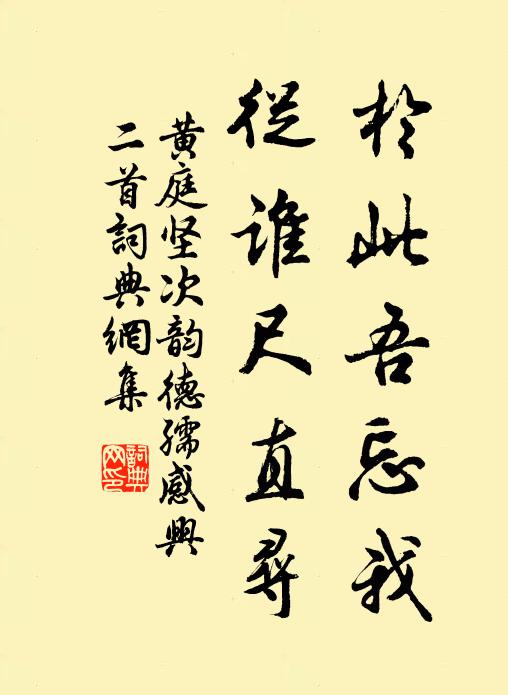 於此吾忘我
從誰尺直尋
黄庭坚次韵德孺感興
二首詞典網集
詞典网印